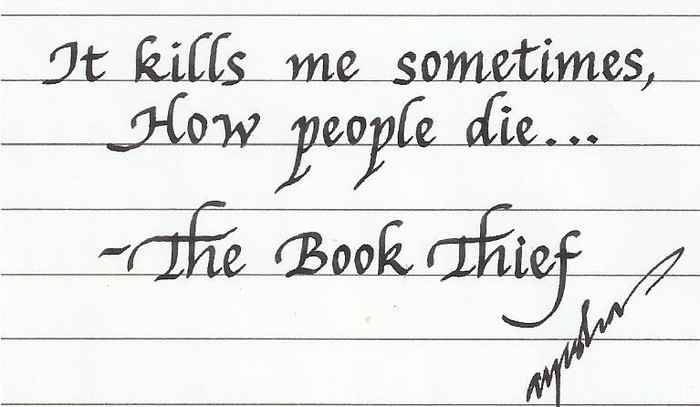 It kills me sometimes,
How people die...
-The Book Thief